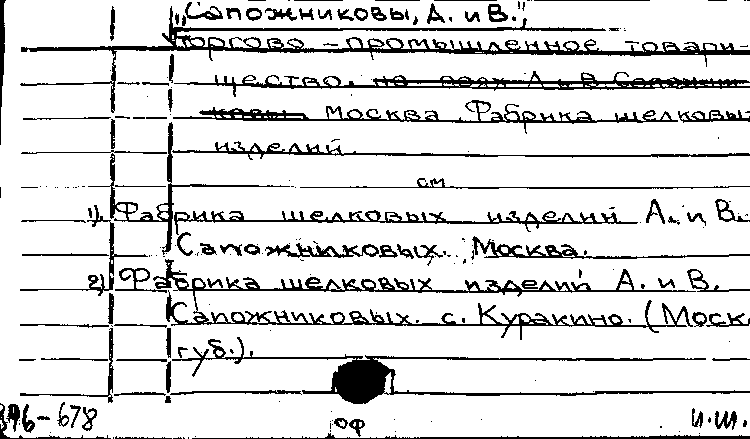 "Сапожниковы, А. и В.",
торгово-промышленное товари-
щество. на паях А и В Сапожни-
ковы. Москва. Фабрика шелковых
изделий.
см
1). Фабрика шелковых изделий А. и В.
Сапожниковых. Москва.
2) Фабрика шелковых изделий А. и В.
Сапожниковых. с. Куракино. (Моск.
губ.).
396-678
ОФ
И.Ш.